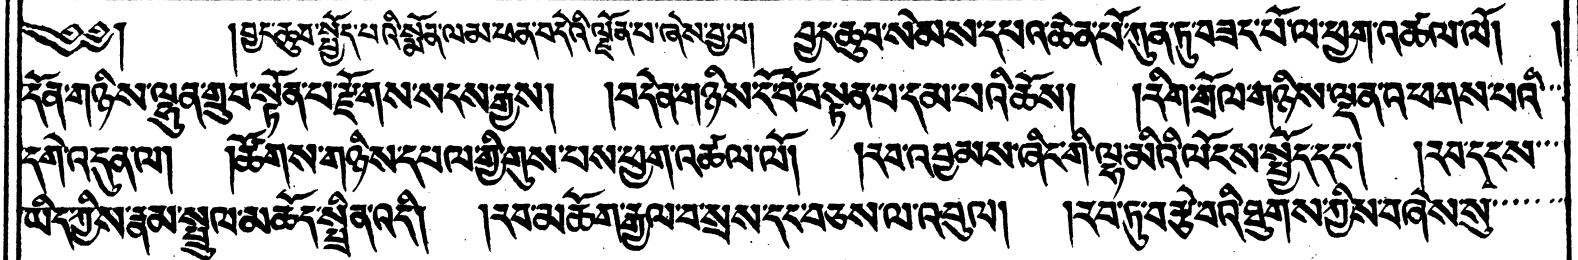 ༄༅༅། །བྱང་ཆུབ་སྤྱོད་པའི་སྨོན་ལམ་ཕན་བདེའི་ལྗོན་པ་ཞེས་བྱ་བ། བྱང་ཆུབ་སེམས་དཔའ་ཆེན་པོ་ཀུན་ཏུ་བཟང་པོ་ལ་ཕྱག་འཚལ་ལོ། །
དོན་གཉིས་ལྷུན་གྲུབ་སྟོན་པ་རྫོགས་སངས་རྒྱས། །བདེན་གཉིས་ངོ་བོ་བསྟན་པ་དམ་པའི་ཆོས། །རིག་གྲོལ་གཉིས་ལྡན་འཕགས་པའི་
དགེ་འདུན་ལ། །ཚོགས་གཉིས་དཔལ་གྱི་གུས་པས་ཕྱག་འཚལ་ལོ། །རབ་འབྱམས་ཞིང་གི་ལྷ་མིའི་ལོངས་སྤྱོད་དང་། །རབ་དྭངས་
ཡིད་ཀྱིས་རྣམ་སྤྲུལ་མཆོད་སྤྲིན་འདི། །རབ་མཆོག་རྒྱལ་བ་སྲས་དང་བཅས་ལ་འབུལ། །རབ་ཏུ་བརྩེ་བའི་ཐུགས་ཀྱིས་བཞེས་སུ་